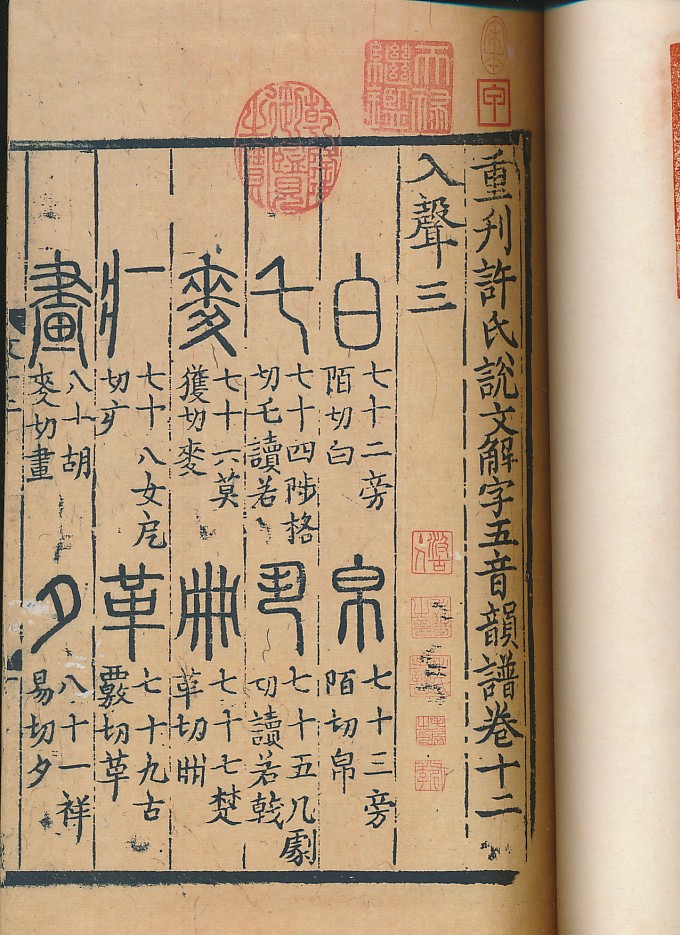 重刊許氏說文解字五音韻譜卷十二
入聲三
白
七十二旁
陌切白
帛
七十三旁
陌切帛
乇
七十四陟格
切乇讀若
丮
七十五几劇
切讀若戟
麥
七十六莫
獲切麥
冊
七十七楚
革切冊
疒
七十八女戹
切疒
革
七十九古
覈切革
畫
八十胡
麥切畫
夕
八十一祥
易切夕
天祿
繼鑑
乾隆
御覽
之寶
宋本
甲